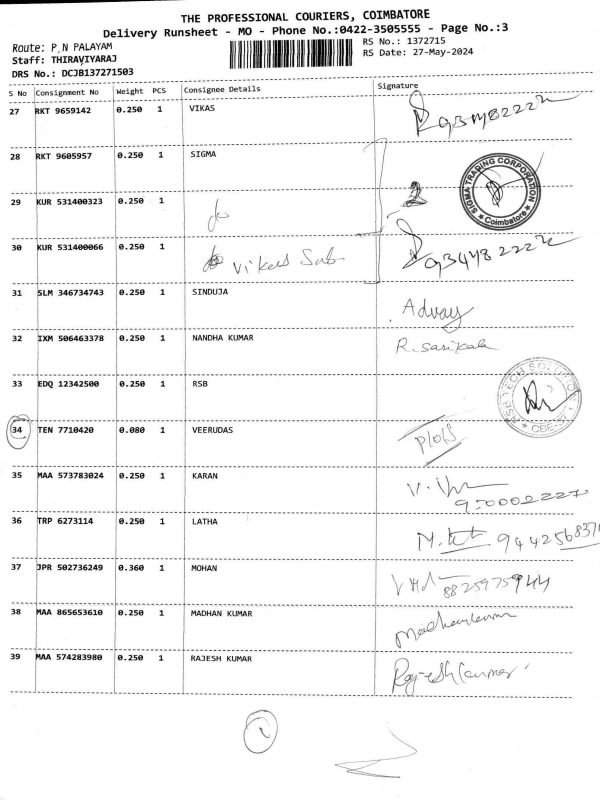 THE PROFESSIONAL COURIERS, COIMBATORE
Delivery Runsheet - MO - Phone No.:0422-3505555 - Page No.:3
Route: P.N PALAYAM
RS No.: 1372715
Staff: THIRAVIYARAJ
RS Date: 27-May-2024
DRS No.: DCJB137271503
S No Consignment No Weight PCS Consignee Details Signature
27 RKT 9659142 0.250 1 VIKAS
28 RKT 9605957 0.250 1 SIGMA
SIGMA TRADING CORPORATION
Coimbatore
29 KUR 531400323 0.250 1
30 KUR 531400066 0.250 1
31 SLM 346734743 0.250 1 SINDUJA Advay
32 IXM 506463378 0.250 1 NANDHA KUMAR R. Sasikala
33 EDQ 12342500 0.250 1 RSB
34 TEN 7710420 0.080 1 VEERUDAS
35 MAA 573783024 0.250 1 KARAN
36 TRP 6273114 0.250 1 LATHA
37 JPR 502736249 0.360 1 MOHAN 8825975944
38 MAA 865653610 0.250 1 MADHAN KUMAR Madhankumar
39 MAA 574283980 0.250 1 RAJESH KUMAR Rajeshkumar